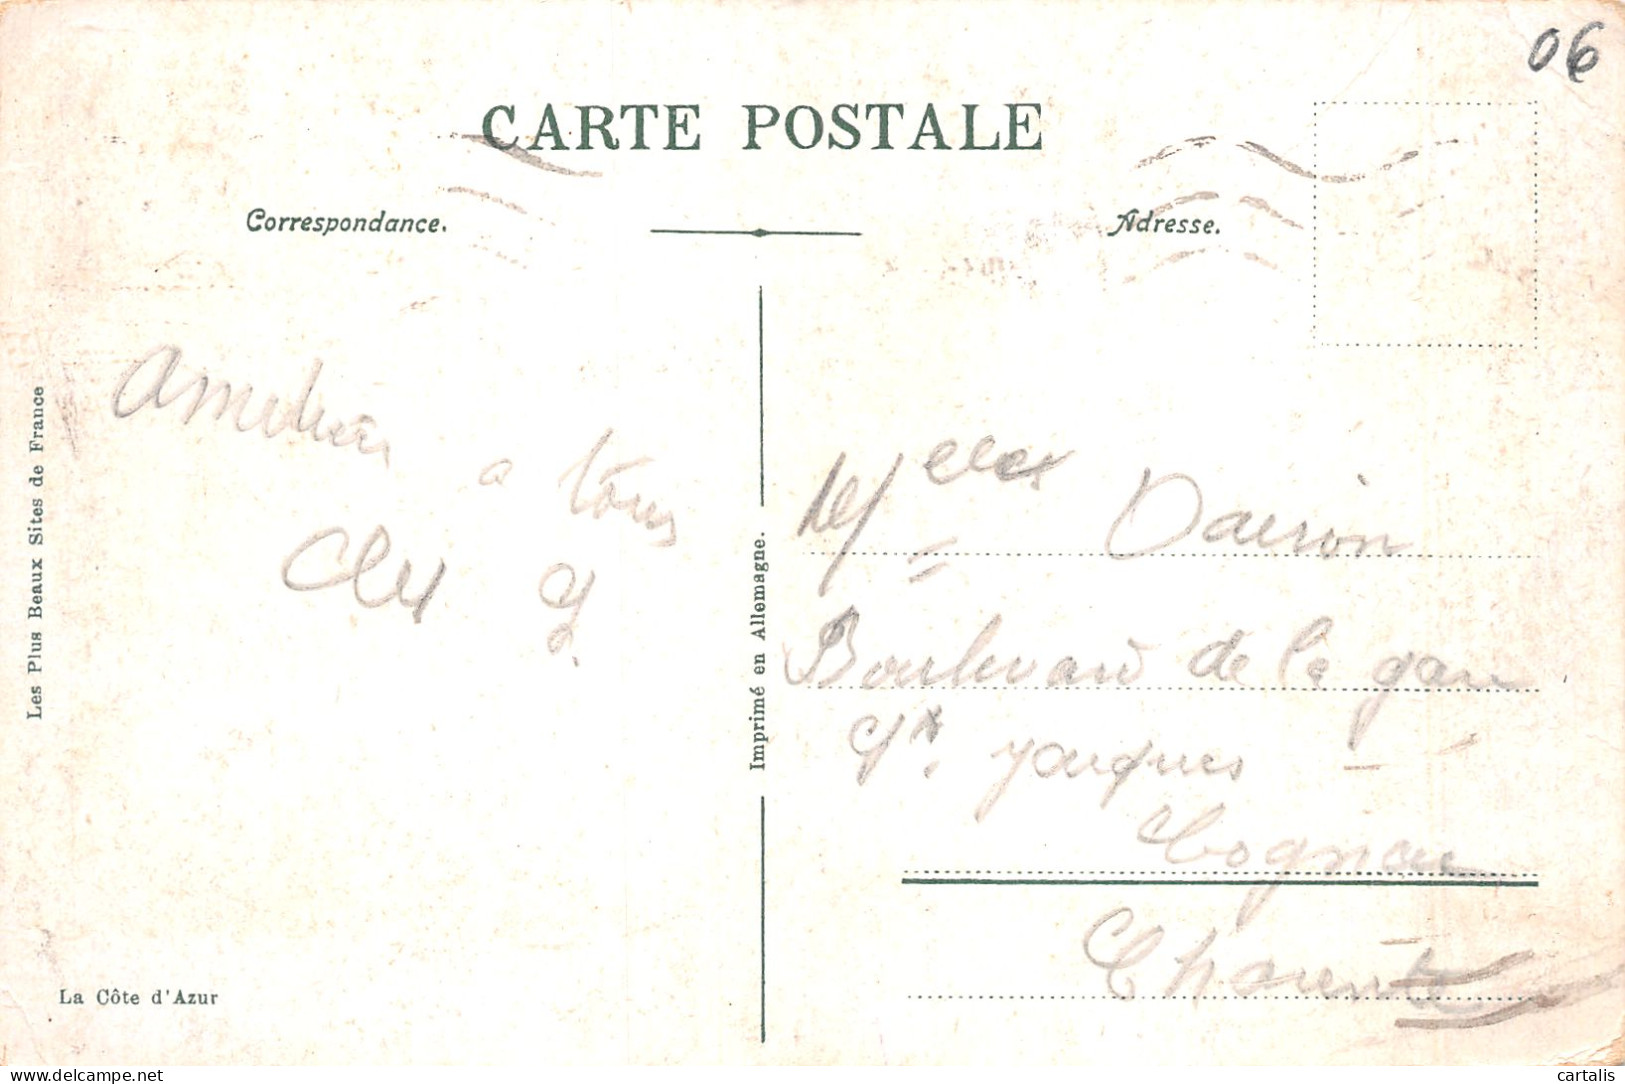 06
CARTE POSTALE
Correspondance.
Adresse.
Les Plus Beaux Sites de France
a tous
Imprimé en Allemagne.
Boulevard de la gare
St. Jacques
Cognac
Charente
La Côte d'Azur
delcampe.net
cartalis